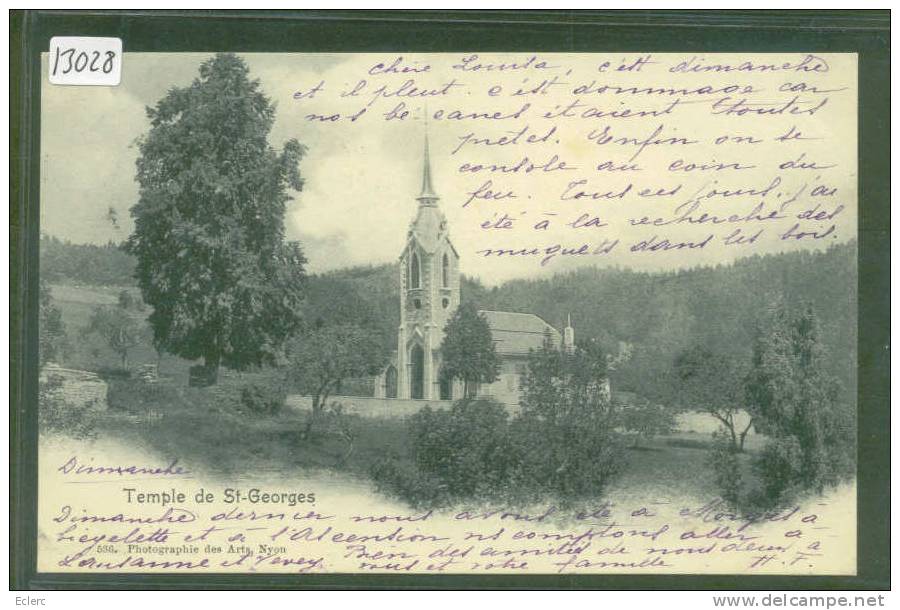 13028
chère Louisa, c'est dimanche
et il pleut. c'est dommage car
nos bécanes étaient toutes
prêtes. Enfin on se
console au coin du
feu. Tous ces jours, j'ai
été à la recherche des
muguets dans les bois.
Dimanche
Temple de St-Georges
Dimanche dernier nous avons été à Morges à
bicyclette et à l'Ascension ns comptons aller à
536. Photographie des Arts, Nyon
Lausanne et Vevey. Bien des amitiés de nous deux à
vous et votre famille H. F.
Eclerc
http://www.delcampe.net